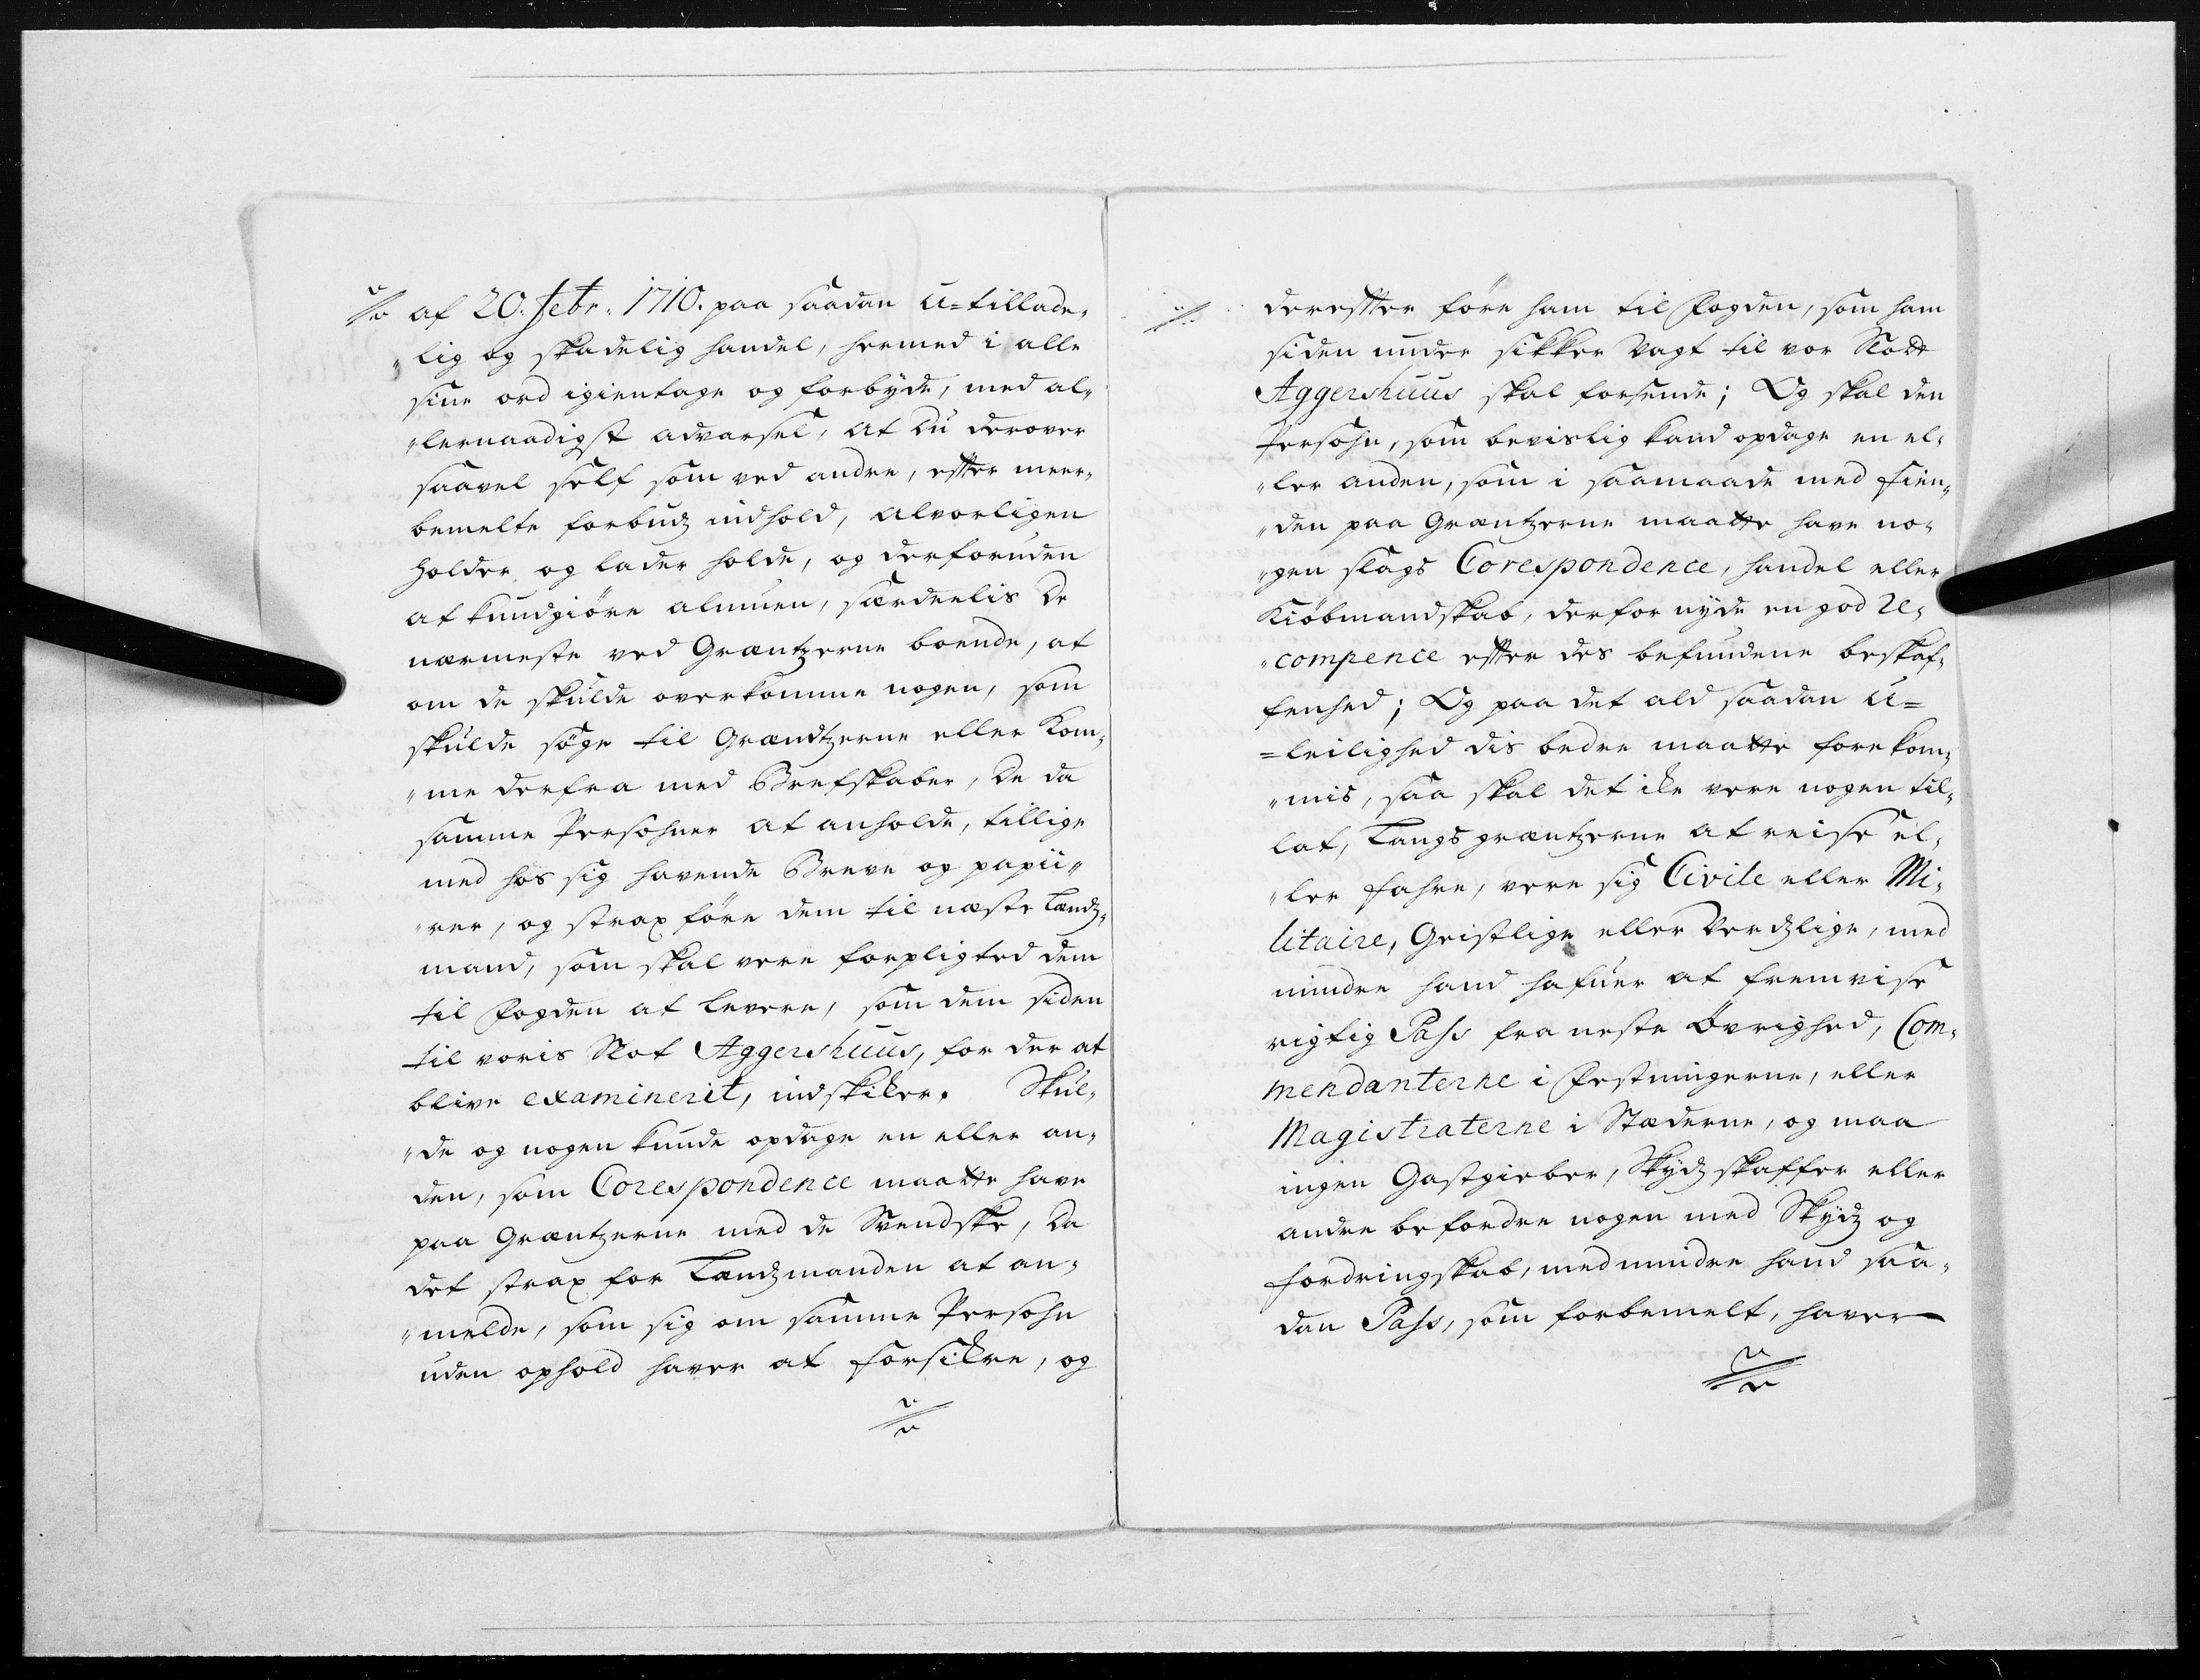 af 20. Febr: 1710. paa saadan U-tillade,
"lig og skadelig handel, hermed i alle
sine ord igientage og forbyde, med al,
"lernaadigst advarsel, at du derover
saavel self som ved andre, efter meer,
bemelte forbudz indhold, alvorligen
holder og lader holde, og derforuden
at kundgiöre almuen, særdeelis de
nærmeste ved Græntzerne boende, at
om de skulde overkomme nogen, som
skulde söge til Grændtzerne eller kom,
"me derfra med Brefskaber, de da
samme Persohner at anholde, tillige
med hos sig havende Breve og papii,
"rer, og strax före dem til næste Lændz,
mand, som skal vere forpligted dem
til Fogden at levere, som dem siden
til voris Slot Aggershuus, for der at
blive examinerit, indskiker. Skul,
"de og nogen kunde opdage en eller an,
den, som Corespondence maatte have
paa Græntzerne med de Svendske, da
det strax for Lændzmanden at an,
"melde, som sig om samme Persohn
uden ophold haver at forsikre, og
derefter före ham til Fogden, som ham
siden under sikker Vagt til vor Slott
Aggershuus skal forsende; Og skal den
Persohn, som bevislig kand opdage en el,
"ler anden, som i saamaade med Fien,
"den paa Græntzerne maatte have no,
"gen slags Corespondence, handel eller
Kiöbmandskab, derfor nyde en god Re,
"compence efter des befundene beskaf,
fenhed; Og paa det ald saadan U=
=leilighed dis bedre maatte forekom,
"mis, saa skal det ike vere nogen til,
lat, Langs græntzerne at reise el,
"ler fahre, vere sig Civile eller Mi,
litaire, Geistlige eller Verdzlige, med
mindre hand hafuer at fremvise
rigtig Pass fra neste Övrighed, Com,
mendanterne i Festningerne, eller
Magistraterne i Stæderne, og maa
ingen Gastgieber, Skydz skaffer eller
andre befordre nogen med Skydz og
fordringskab, medmindre hand saa,
dan Pass, som forbemelt, haver